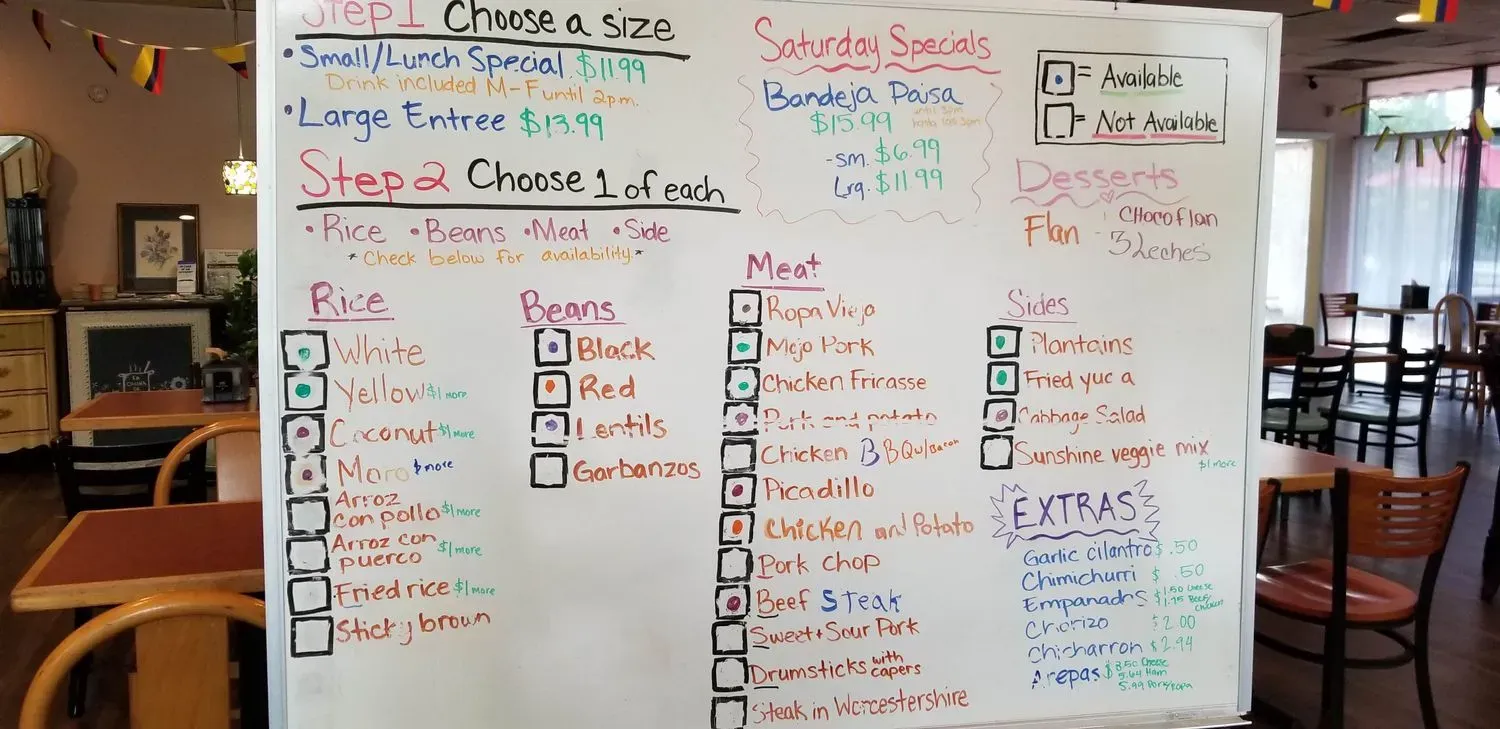 Step 1 Choose a size
• Small/Lunch Special $11.99
Drink included M-F until 2pm.
• Large Entree $13.99
Step 2 Choose 1 of each
• Rice • Beans • Meat • Side
* Check below for availability. *
Rice
White
Yellow $1 more
Coconut $1 more
Moro $ more
Arroz
con pollo $1 more
Arroz con
puerco $1 more
Fried rice $1 more
Sticky brown
Beans
Black
Red
Lentils
Garbanzos
Saturday Specials
Bandeja Paisa
$15.99 until 3pm
hasta las 3pm
- sm. $6.99
Lrg. $11.99
Meat
Ropa Viejo
Mojo Pork
Chicken Fricasse
Pork and potato
Chicken BBQ w/Bacon
Picadillo
Chicken and Potato
Pork chop
Beef Steak
Sweet + Sour Pork
Drumsticks with
capers
Steak in Worcestershire
= Available
= Not Available
Desserts
Flan - Choco flan
- 3 Leches
Sides
Plantains
Fried yuca
Cabbage Salad
Sunshine veggie mix
$1 more
EXTRAS
Garlic cilantro $ .50
Chimichurri $ .50
Empanadas $1.50 Cheese
$1.75 Beef/
Chicken
Chorizo $2.00
Chicharron $2.94
Arepas $3.50 Cheese
5.64 Ham
5.99 Pork/Ropa